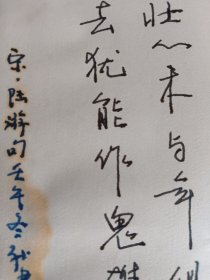 壮心未与年
去犹能作鬼
宋·陆游句 壬午冬